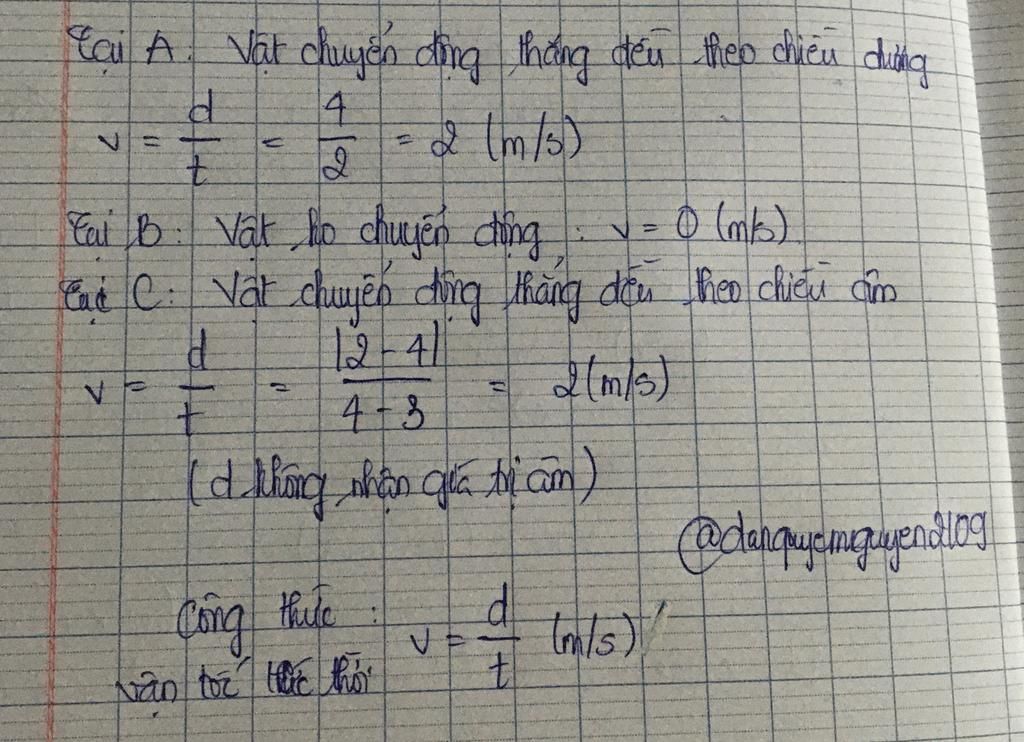 Tại A: Vật chuyển động thẳng đều theo chiều dương
v = d/t = 4/2 = 2 (m/s)
Tại B: Vật ko chuyển động : v = 0 (m/s)
Tại C: Vật chuyển động thẳng đều theo chiều âm
v = d/t = |2-4|/4-3 = 2(m/s)
(d không nhận giá trị âm)
Công thức : v = d/t (m/s)
vận tốc tức thời